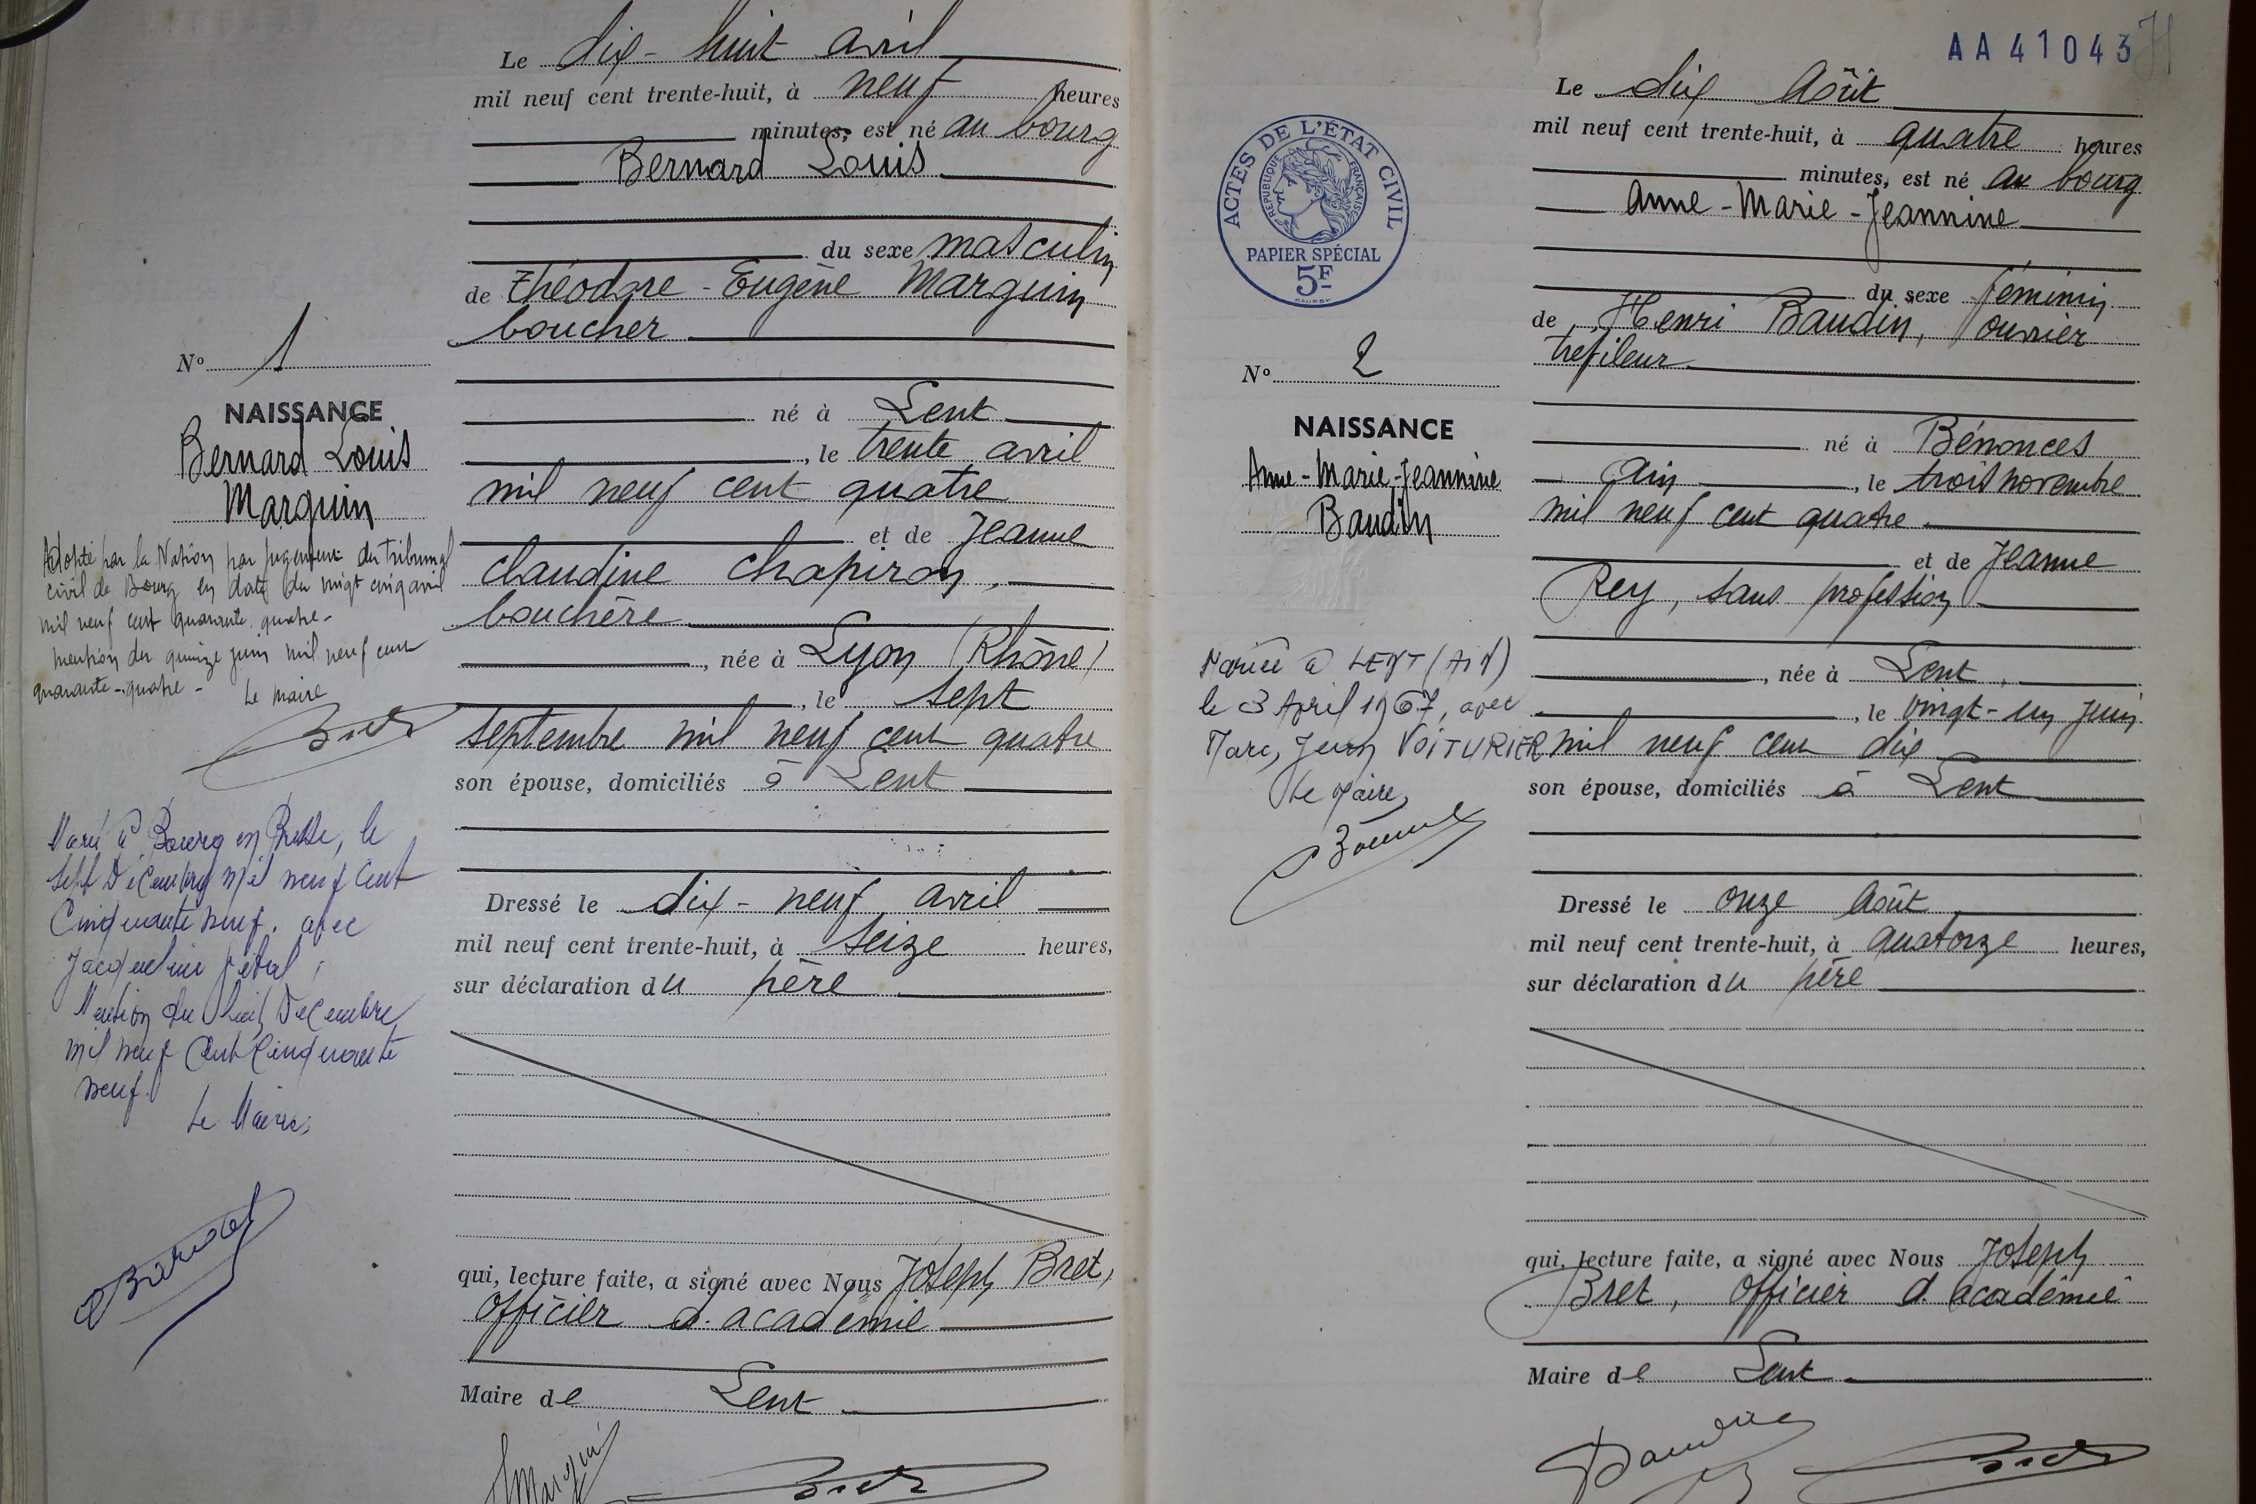 Le dix-huit avril
mil neuf cent trente-huit, à neuf heures
minutes, est né au bourg
Bernard Louis
du sexe masculin
de Théodore-Eugène Marguin
boucher
né à Lent
, le trente avril
mil neuf cent quatre
et de Jeanne
Claudine Chapiron,
bouchère
, née à Lyon (Rhône)
, le sept
septembre mil neuf cent quatre
son épouse, domiciliés à Lent
Dressé le dix-neuf avril
mil neuf cent trente-huit, à seize heures,
sur déclaration du père
qui, lecture faite, a signé avec Nous Joseph Bret,
officier d'académie
Maire de Lent
Marguin
Bret
N° 1
NAISSANCE
Bernard Louis
Marguin
Adopté par la Nation par jugement du tribunal
civil de Bourg en date du vingt cinq avril
mil neuf cent quarante quatre-
mention du quinze juin mil neuf cent
quarante-quatre-
Le maire
Bret
Marié à Bourg en Bresse, le
sept Décembre mil neuf cent
cinquante neuf. avec
Mention du huit Décembre
mil neuf cent cinquante
neuf.
Le Maire,
AA41043
ACTES DE L'ÉTAT CIVIL
RÉPUBLIQUE FRANÇAISE
PAPIER SPÉCIAL
5F
N° 2
NAISSANCE
Anne-Marie-Jeannine
Baudin
Mariée à LENT (AIN)
le 3 Avril 1967, avec
Marc, Jean VOITURIER
Le Maire,
Le dix Août
mil neuf cent trente-huit, à quatre heures
minutes, est né au bourg
Anne-Marie-Jeannine
du sexe féminin
de Henri Baudin, ouvrier
tréfileur
né à Bénonces
Ain, le trois novembre
mil neuf cent quatre
et de Jeanne
Rey, sans profession
, née à Lent,
, le vingt-un juin
mil neuf cent dix
son épouse, domiciliés à Lent
Dressé le onze Août
mil neuf cent trente-huit, à quatorze heures,
sur déclaration du père
qui, lecture faite, a signé avec Nous Joseph
Bret, officier d'académie
Maire de Lent
Baudin
Bret